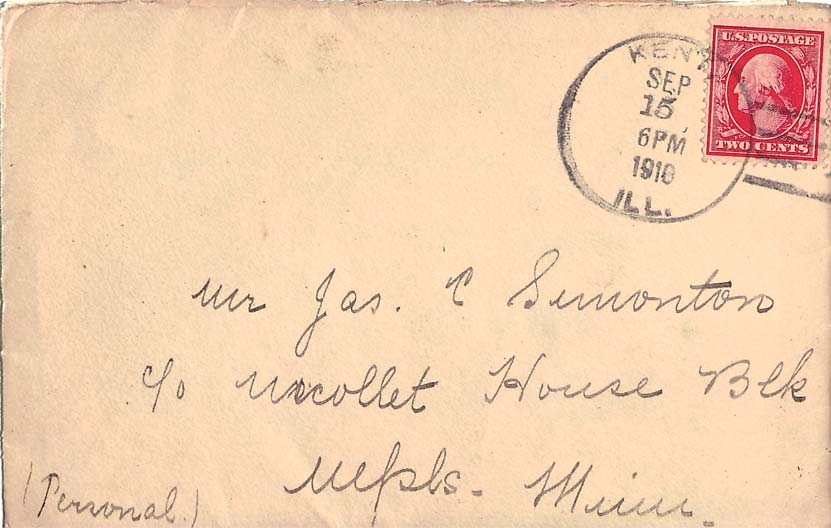 U.S. POSTAGE
TWO CENTS
KENT
SEP
15
6PM
1910
ILL.
Mr Jas. C Simonton
c/o Nicollet House Blk
Mpls. Minn.
(Personal.)